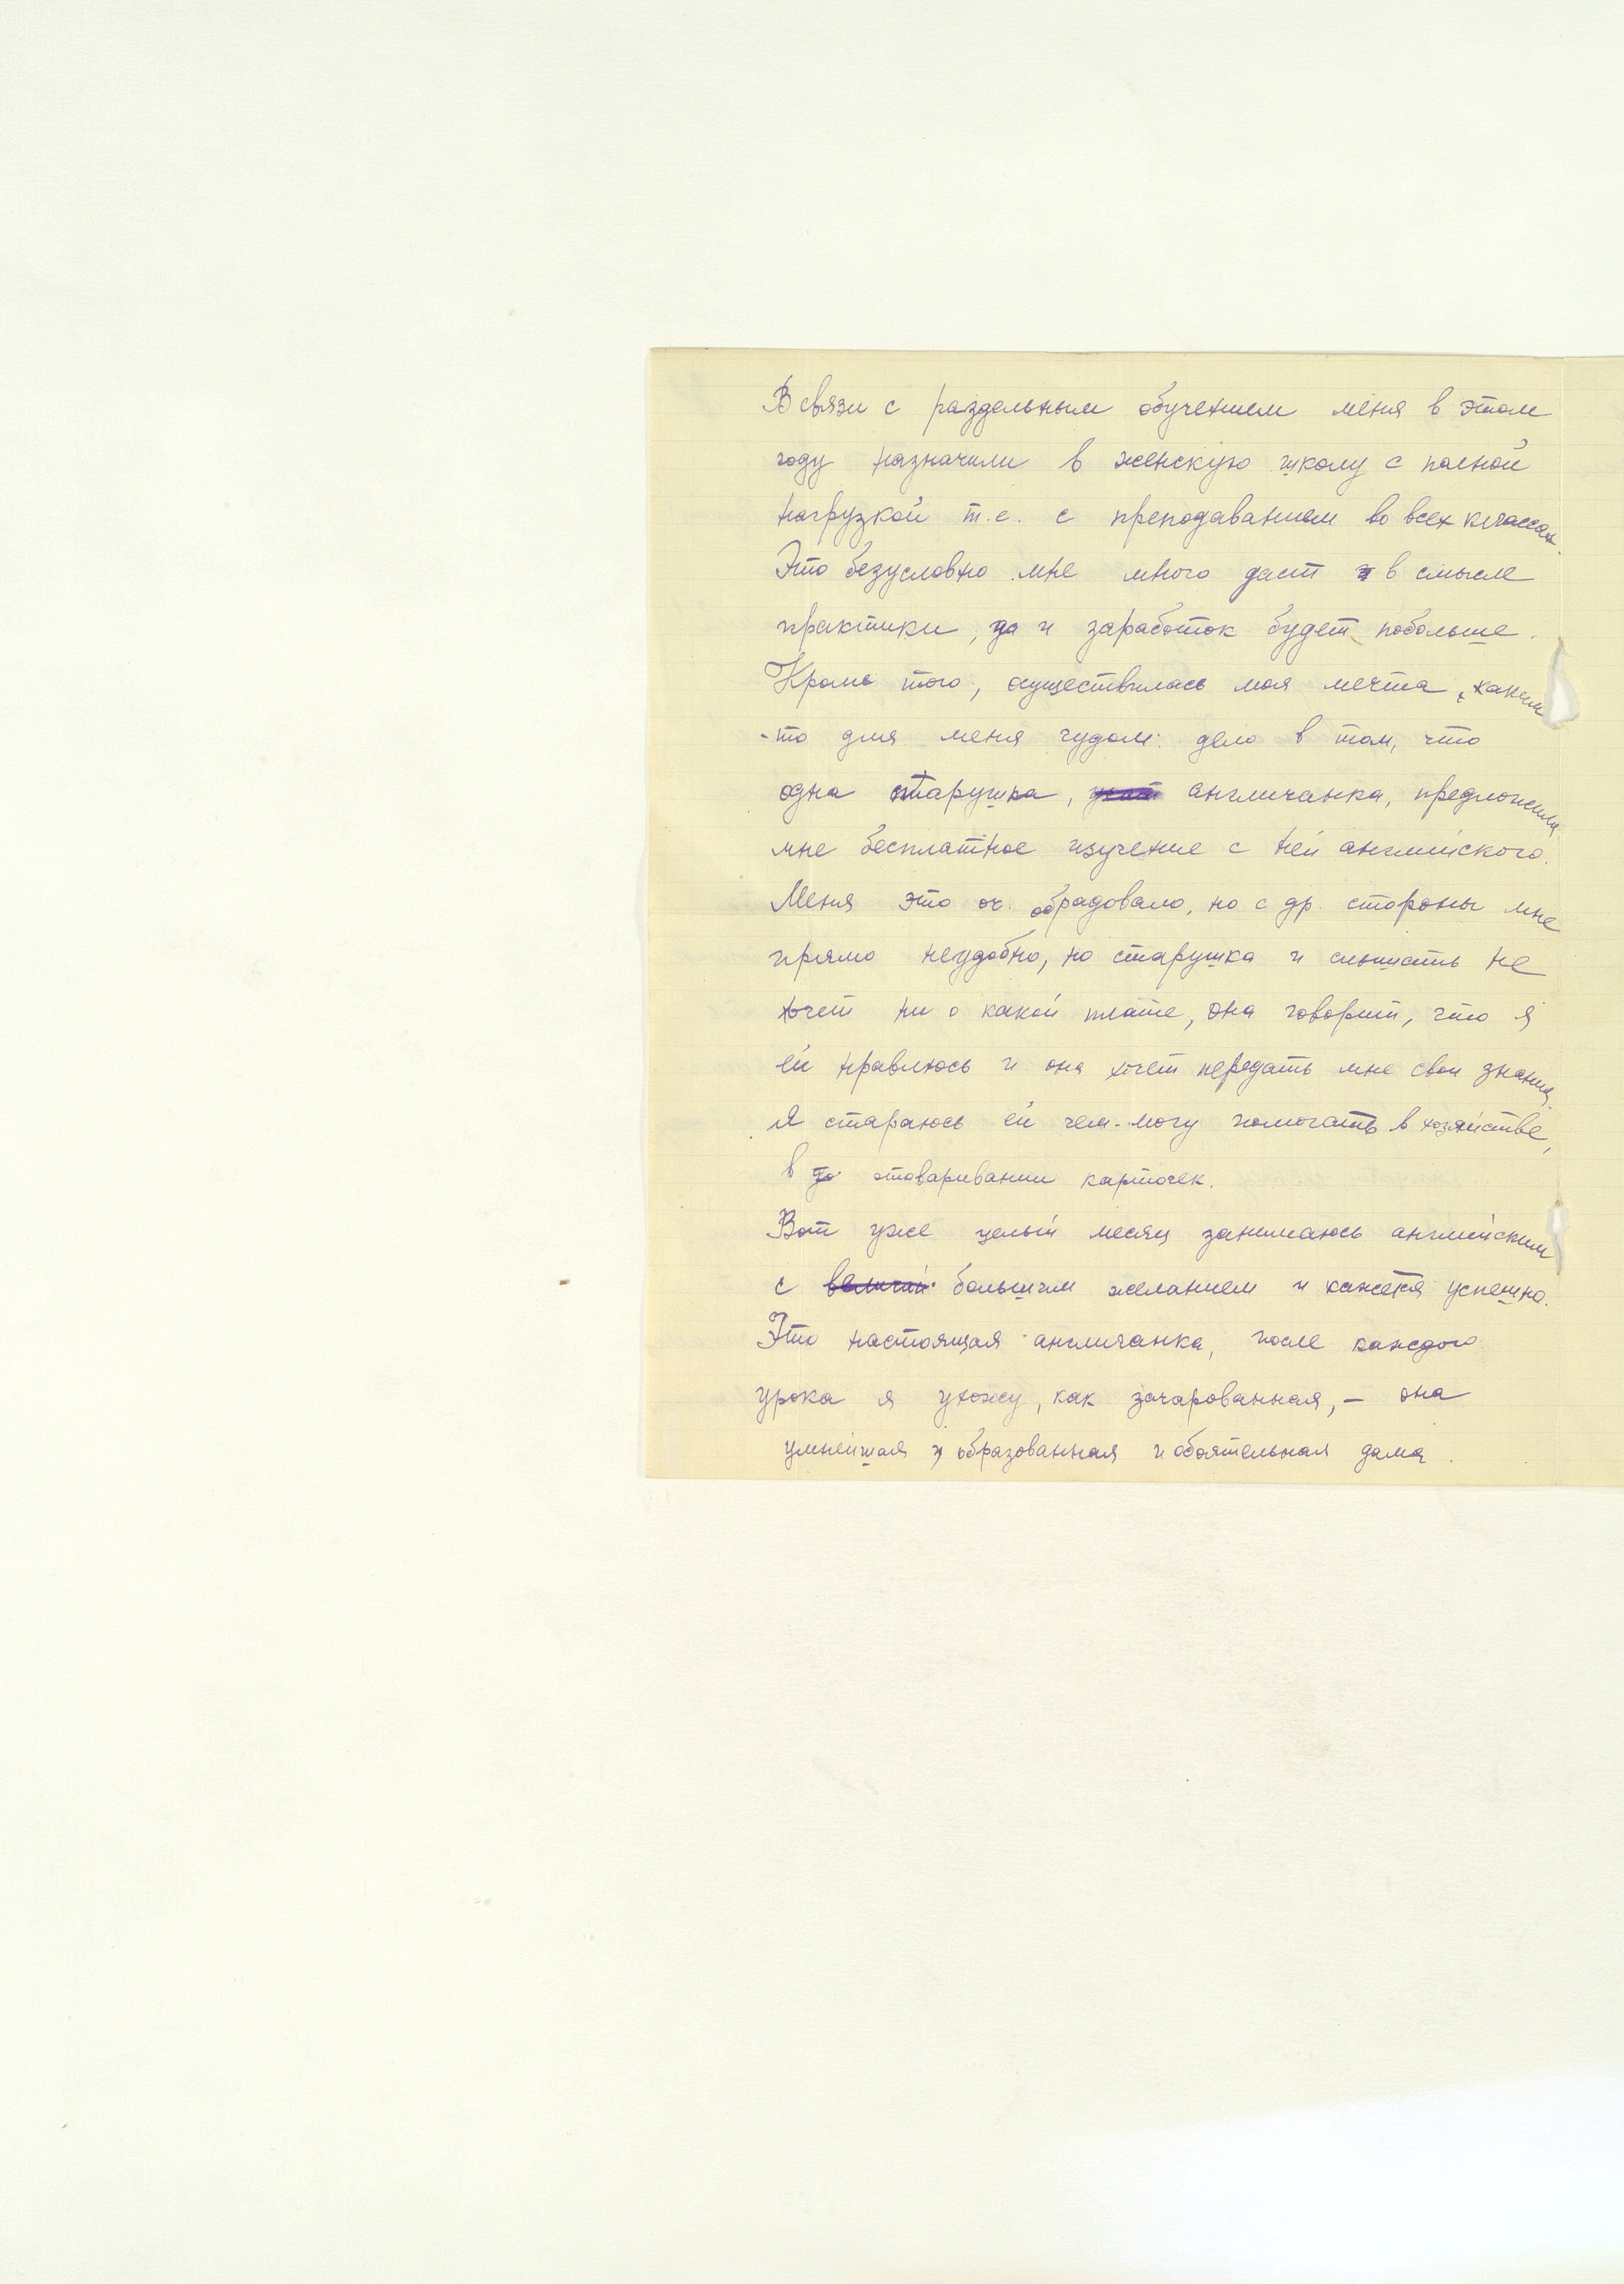 В связи с раздельным обучением меня в этом
году назначили в женскую школу с полной
нагрузкой т.е. с преподаванием во всех классах.
Это безусловно мне много даст в смысле
практики, да и заработок будет побольше.
Кроме того, осуществилась моя мечта, каким
-то для меня чудом: дело в том, что
одна старушка, англичанка, предложила
мне бесплатное изучение с ней английского.
Меня это оч. обрадовало, но с др. стороны мне
прямо неудобно, но старушка и слышать не
хочет ни о какой плате, она говорит, что я
ей нравлюсь и она хочет передать мне свои знания.
Я стараюсь ей чем-могу помогать в хозяйстве,
в отоваривании карточек.
Вот уже целый месяц занимаюсь английским
с большим желанием и кажется успешно.
Это настоящая англичанка, после каждого
урока я ухожу, как зачарованная, – она
умнейшая, образованная и обаятельная дама.